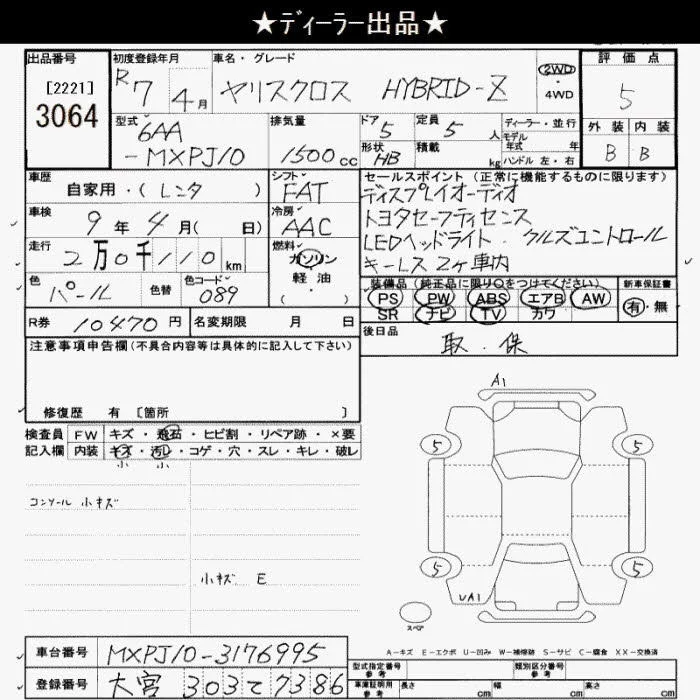 ★ディーラー出品★
出品番号
[2221]
3064
初度登録年月
R7 4月
車名・グレード
ヤリスクロス HYBRID-Z
2WD
・4WD
評価点
5
外装 内装
B B
型式
6AA
-MXPJ10
排気量
1500cc
ドア
5
形状
HB
定員
5人
積載
kg
ディーラー・並行
モデル
年式 年
ハンドル 左・右
車歴
自家用・(レンタ )
シフト
FAT
車検
9年4月( 日)
冷房
AAC
走行
2万0千110km
燃料
ガソリン
・
軽油
( )
色
パール
色替
色コード
089
セールスポイント(正常に機能するものに限ります)
ディスプレイオーディオ
トヨタセーフティセンス
LEDヘッドライト・クルズコントロール
キーレス2ヶ車内
装備品(純正品に限り○をつけてください)
PS PW ABS エアB AW
SR ナビ TV カワ
新車保証書
有・無
R券
10470円
名変期限 月 日
後日品
取.保
注意事項申告欄(不具合内容等は具体的に記入して下さい)
修復歴 有 [箇所 ]
検査員
記入欄
FW キズ・飛石・ヒビ割・リペア跡・×要
内装 キズ・汚レ・コゲ・穴・スレ・キレ・破レ
小 小
コンソール小キズ
小キズ E
A1
5 5
5 5
UA1
スペア
A-キズ E-エクボ U-凹み W-補修跡 S-サビ C-腐食 XX-交換済
車台番号
MXPJ10-3176995
登録番号
大宮303て7386
型式指定番号
参考
類別区分番号
参考
車庫証明用
参考
長さ cm 幅 cm 高さ cm